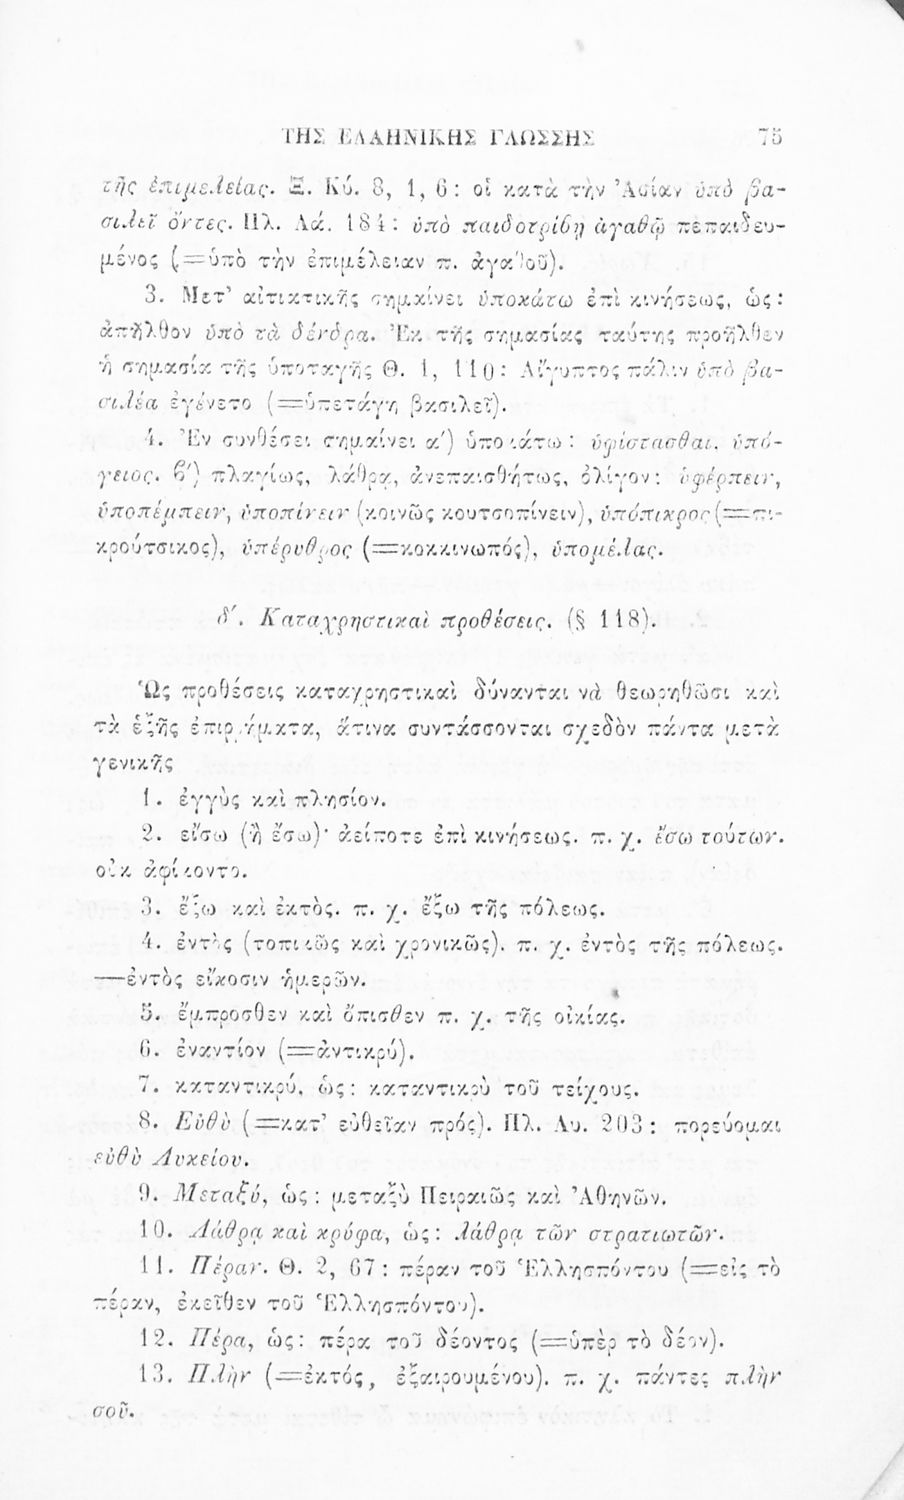 ΤΗΣ ΕΛΛΗΝΙΚΗΣ ΓΛΩΣΣΗΣ 75
τῆς ἐπιμελείας. Ξ. Κύ. 8, 1, 6: οἱ κατὰ τὴν Ἀσίαν ὑπὸ βα-
σιλεῖ ὄντες. Πλ. Λά. 184: ὑπὸ παιδοτρίβῃ ἀγαθῷ πεπαιδευ-
μένος (=ὑπὸ τὴν ἐπιμέλειαν π. ἀγαθοῦ).
3. Μετ’ αἰτιατικῆς σημαίνει ὑποκάτω ἐπὶ κινήσεως, ὡς:
ἀπῆλθον ὑπὸ τὰ δένδρα. Ἐκ τῆς σημασίας ταύτης προῆλθεν
ἡ σημασία τῆς ὑποταγῆς Θ. 1, 110: Αἴγυπτος πάλιν ὑπὸ βα-
σιλέα ἐγένετο (=ὑπετάγη βασιλεῖ).
4. Ἐν συνθέσει σημαίνει α’) ὑποκάτω: ὑφίστασθαι, ὑπό-
γειος. β’) πλαγίως, λάθρᾳ, ἀνεπαισθήτως, ὀλίγον: ὑφέρπειν,
ὑποπέμπειν, ὑποπίνειν (κοινῶς κουτσοπίνειν), ὑπόπικρος (=πι-
κρούτσικος), ὑπέρυθρος (=κοκκινωπός), ὑπομέλας.
δ’. Καταχρηστικαὶ προθέσεις. (§ 118).
Ὡς προθέσεις καταχρηστικαὶ δύνανται νὰ θεωρηθῶσι καὶ
τὰ ἑξῆς ἐπιρρήματα, ἅτινα συντάσσονται σχεδὸν πάντα μετὰ
γενικῆς
1. ἐγγὺς καὶ πλησίον.
2. εἴσω (ἢ ἔσω)· ἀείποτε ἐπὶ κινήσεως. π. χ. ἔσω τούτων.
οὐκ ἀφίκοντο.
3. ἔξω καὶ ἐκτὸς. π. χ. ἔξω τῆς πόλεως.
4. ἐντὸς (τοπικῶς καὶ χρονικῶς). π. χ. ἐντὸς τῆς πόλεως.
—ἐντὸς εἴκοσιν ἡμερῶν.
5. ἔμπροσθεν καὶ ὄπισθεν π. χ. τῆς οἰκίας.
6. ἐναντίον (=ἀντικρύ).
7. καταντικρύ, ὡς: καταντικρὺ τοῦ τείχους.
8. Εὐθὺ (=κατ’ εὐθεῖαν πρός). Πλ. Λυ. 203: πορεύομαι
εὐθὺ Λυκείου.
9. Μεταξύ, ὡς: μεταξὺ Πειραιῶς καὶ Ἀθηνῶν.
10. Λάθρᾳ καὶ κρύφα, ὡς: λάθρᾳ τῶν στρατιωτῶν.
11. Πέραν. Θ. 2, 67: πέραν τοῦ Ἑλλησπόντου (=εἰς τὸ
πέραν, ἐκεῖθεν τοῦ Ἑλλησπόντου).
12. Πέρα, ὡς: πέρα τοῦ δέοντος (=ὑπὲρ τὸ δέον).
13. Πλὴν (=ἐκτός, ἐξαιρουμένου). π. χ. πάντες πλὴν
σοῦ.